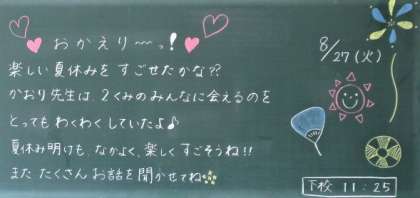 おかえり〜っ!
8/27(火)
楽しい夏休みをすごせたかな??
かおり先生は、2くみのみんなに会えるのを
とってもわくわくしていたよ♪
夏休み明けも、なかよく、楽しくすごそうね!!
またたくさんお話を聞かせてね
下校 11:25